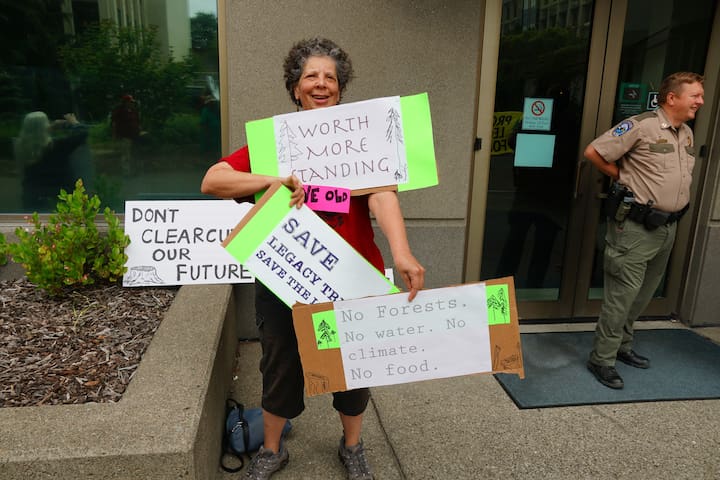 WORTH
MORE
STANDING
VE OLD
DONT
CLEARCU
OUR
FUTURE
SAVE
LEGACY TR
SAVE THE
No Forests.
No water. No
climate.
No food.